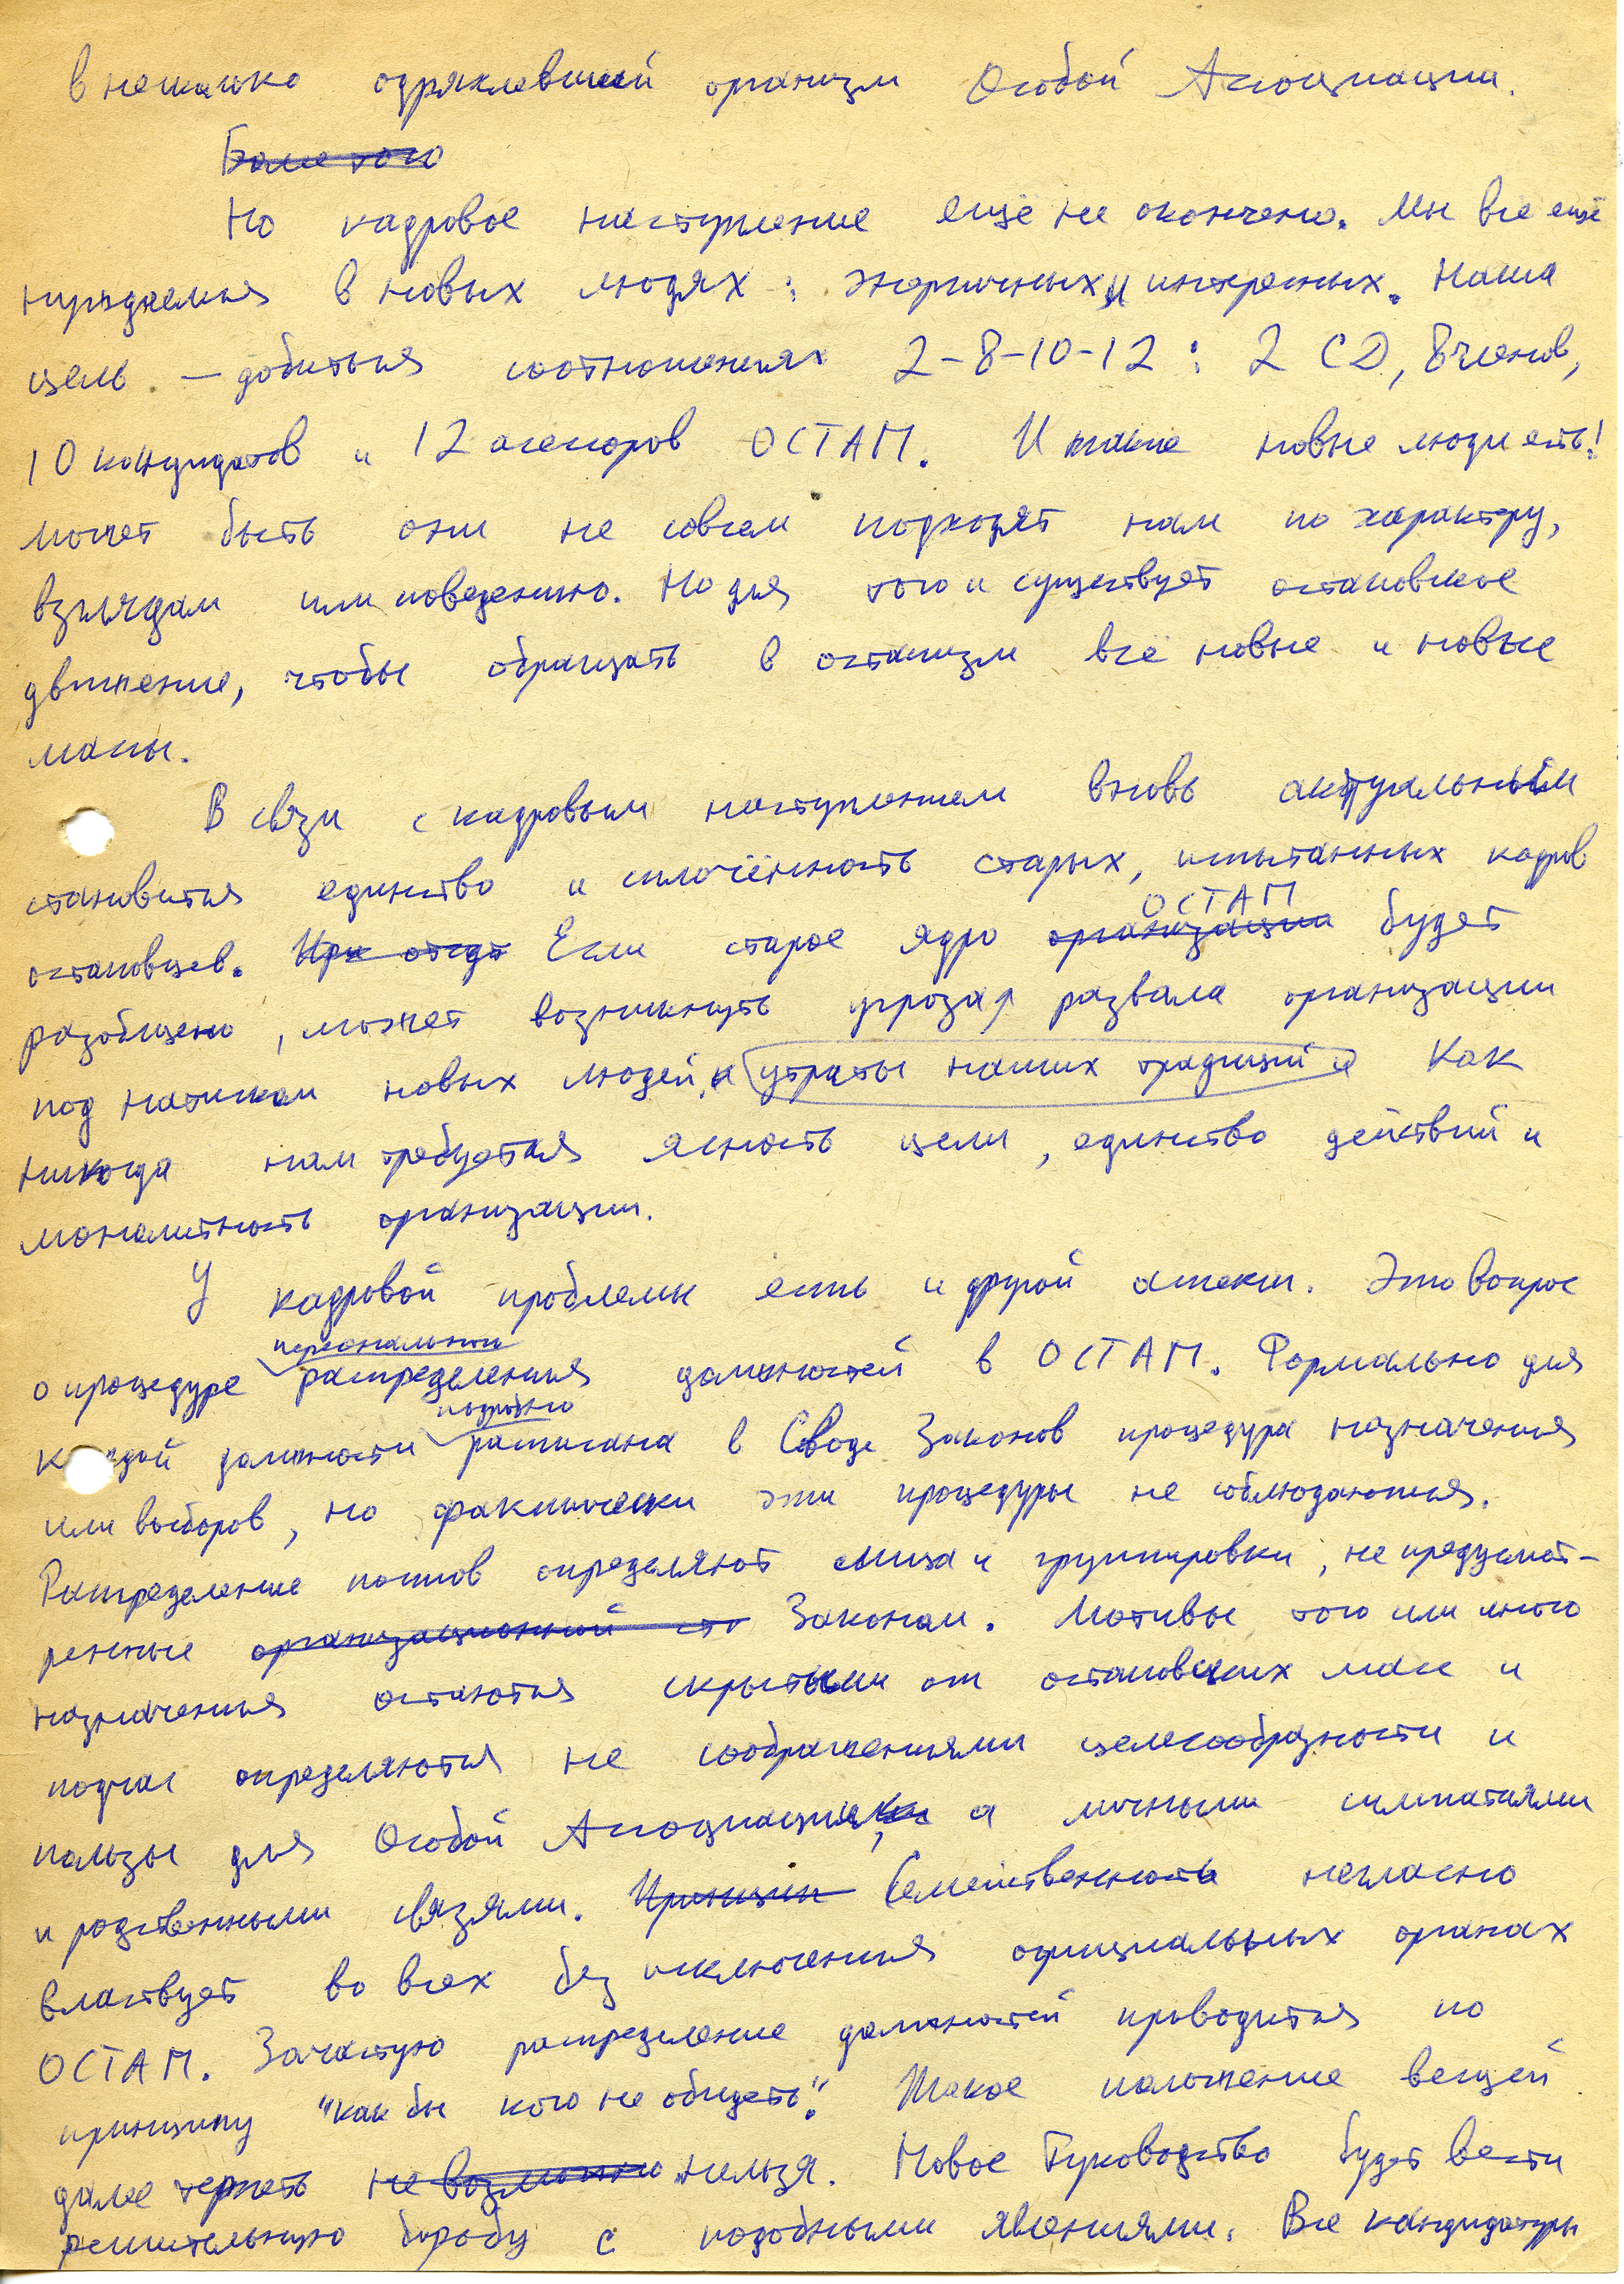 в несколько одряхлевший организм Особой Ассоциации.
Более того
Но кадровое наступление ещё не окончено. Мы все ещё
нуждаемся в новых людях: энергичных и интересных. Наша
цель – добиться соотношения 2-8-10-12: 2 СД, 8 членов,
10 кандидатов и 12 асессоров ОСТАП. И такие новые люди есть!
Может быть они не совсем подходят нам по характеру,
взглядам или поведению. Но для того и существует остаповское
движение, чтобы обращать в остапизм всё новые и новые
массы.
В связи с кадровым наступлением вновь актуальным
становится единство и сплочённость старых, испытанных кадров
ОСТАП
остаповцев. Если старое ядро организации будет
разобщено, может возникнуть угроза развала организации
под натиском новых людей, и утраты наших традиций. Как
никогда нам требуется ясность цели, единство действий и
монолитность организации.
У кадровой проблемы есть и другой аспект. Это вопрос
персонального
о процедуре распределения должностей в ОСТАП. Формально для
подробно
каждой должности расписана в Своде Законов процедура назначения
или выборов, но фактически эти процедуры не соблюдаются.
Распределение постов определяют лица и группировки, не предусмот-
ренные организационной Законом. Мотивы того или иного
назначения остаются скрытыми от остаповских масс и
подчас определяются не соображениями целесообразности и
пользы для Особой Ассоциации, а личными симпатиями
и родственными связями. Принцип Семейственность негласно
властвует во всех без исключения официальных органах
ОСТАП. Зачастую распределение должностей проводится по
принципу "как бы кого не обидеть". Такое положение вещей
далее терпеть невозможно нельзя. Новое Руководство будет вести
решительную борьбу с подобными явлениями. Все кандидатуры